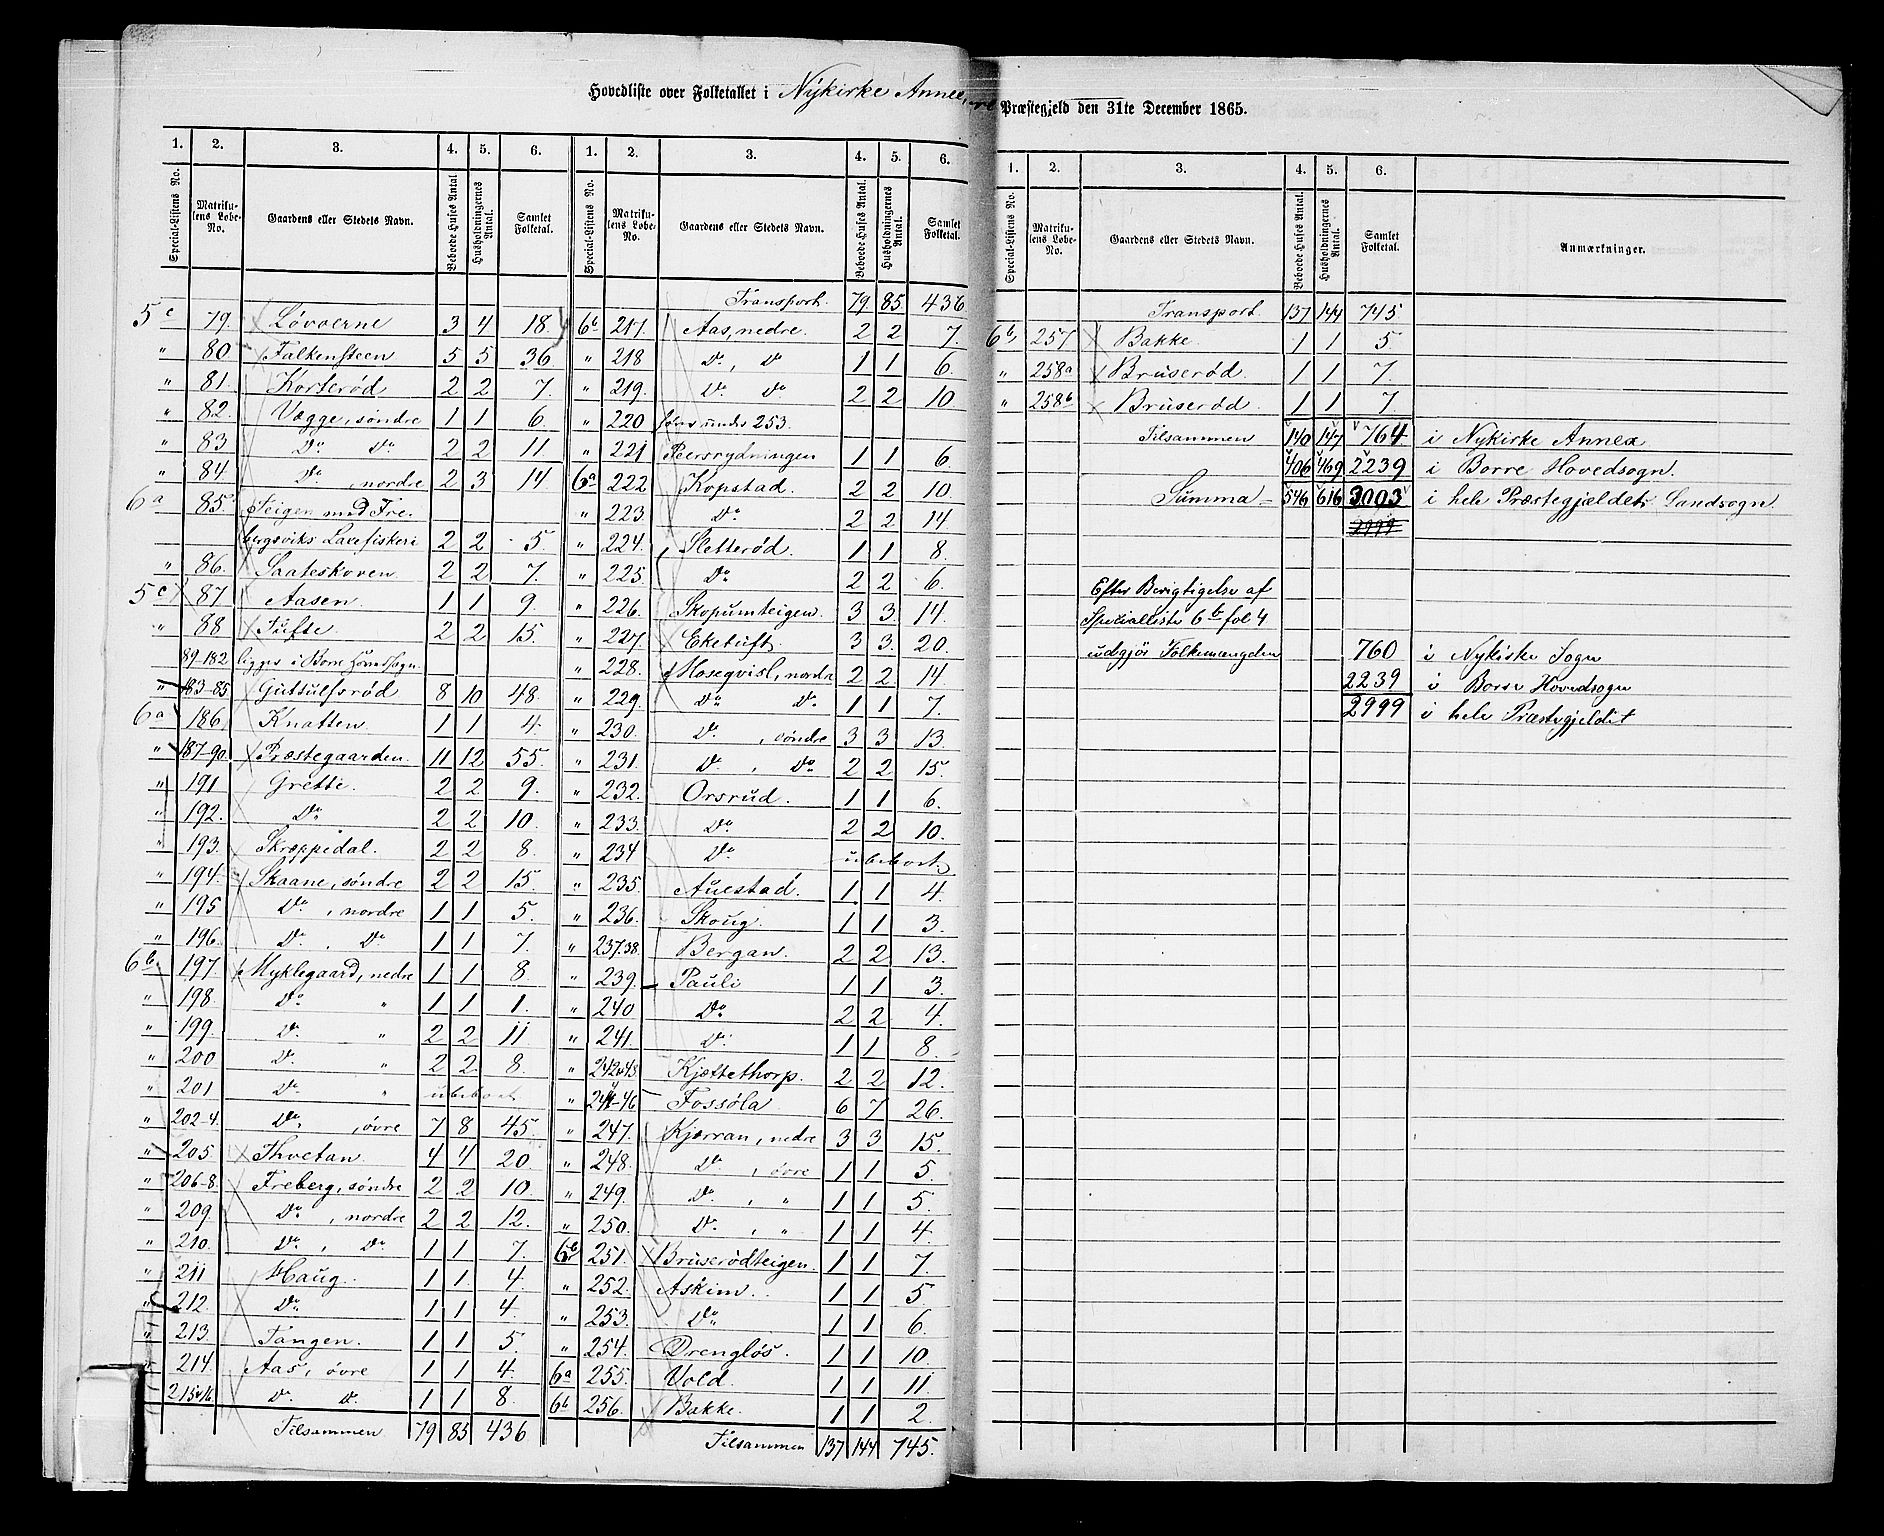 Hovedliste over Folketallet i Nykirke Annex, Præstegjeld den 31te December 1865.
1. 2. 3. 4. 5. 6. 1. 2. 3. 4. 5. 6.
Special-Listens No. Matrikulens Løbe-No. Gaardens eller Stedets Navn. Beboede Huses Antal Husholdningernes Antal. Samlet Folketal. Special-Listens No. Matrikulens Løbe-No. Gaardens eller Stedets Navn. Beboede Huses Antal. Husholdningernes Antal. Samlet Folketal.
5c 79. Løvøerne 3 4 18
" 80 Falkensteen 5 5 36
" 81. Korterød 2 2 7.
" 82. Vægge, søndre 1 1 6
" 83 Do Do 2 2 11
" 84 Do, nordre 2 3 14
6a 85. Teigen med Fre-
bergsviks Laxefiskeri 2 2 5
" 86. Saateskoven 2 2 7.
5c 87 Aasen 1 1 9.
" 88 Tufte 2 2 15.
89-182 ligger i Borre Hovedsogn
" 183-85 Gutsulfsrød 8 10 48.
6a 186 Knatten 1 1 4.
" 187-90. Præstegaarden 11 12 55.
" 191 Grette 2 2 9.
" 192. Do 2 2 10.
" 193. Skræppedal. 2 2 8.
" 194. Skaane, søndre 2 2 15.
" 195 Do, nordre 1 1 5.
" 196. Do, Do 1 1 7.
6b 197. Myklegaard, nedre 1 1 8.
" 198. Do " 1 1 1.
" 199. Do " 2 2 11
" 200 Do " 2 2 8.
" 201 Do " ubeboet
" 202-4. Do, øvre 7 8 45.
" 205. Thvetan 4 4 20.
" 206-8. Freberg, søndre 2 2 10.
" 209. Do, nordre 2 2 12.
" 210. Do, Do 1 1 7.
" 211 Haug. 1 1 4.
" 212. Do 1 1 4.
" 213. Tangen. 1 1 5.
" 214. Aas, øvre 1 1 4.
215&16 Do Do 1 1 8.
Tilsammen 79 85 436
Transport. 79 85 436
6b 217. Aas, nedre. 2 2 7.
" 218 Do, Do 1 1 6.
" 219. Do Do 2 2 10
" 220 føres under 253.
" 221 Paersrydningen 1 1 6.
6a 222 Kopstad. 2 2 10.
" 223. Do 2 2 14.
" 224. Sletterød. 1 1 8.
" 225. Do 2 2 6.
" 226. Skopumteigen. 3 3 14.
" 227. Eketuft. 3 3 20.
" 228. Moseqvisl, nordre 2 2 14
" 229. Do Do 1 1 7.
" 230. Do, søndre 3 3 13.
" 231. Do, Do 2 2 15.
" 232. Orsrud. 1 1 6.
" 233. Do 2 2 10.
" 234 Do ubeboet.
" 235. Auestad. 1 1 4.
" 236. Skoug. 1 1 3.
" 237.38. Bergan. 2 2 13.
" 239. Pauli 1 1 3.
" 240 Do 2 2 4.
" 241. Do 1 1 8.
" 242&43 Kjættethorp. 2 2 12.
" 244-46 Fossøla. 6 7 26.
" 247. Kjærran, nedre 3 3 15.
" 248. Do, øvre 1 1 5.
" 249. Do, " 1 1 5.
" 250. Do, " 1 1 4.
6b 251. Bruserødteigen. 1 1 7.
" 252. Askim. 1 1 5.
" 253. Do 1 1 6.
" 254. Drengløs. 1 1 10.
6a 255. Vold. 1 1 11.
6b 256. Bakke. 1 1 2.
Tilsammen 137 144 745.
1. 2. 3. 4. 5. 6.
Special-Listens No. Matrikulens Løbe-No. Gaardens eller Stedets Navn. Beboede Huses Antal. Husholdningernes Antal. Samlet Folketal. Anmærkninger.
Transport. 137 144 745
6b 257 Bakke. 1 1 5
" 258a Bruserød. 1 1 7.
" 258b Bruserød 1 1 7.
Tilsammen 140 147 764 i Nykirke Annex
406 469 2239 i Borre Hovedsogn.
Summa 546 616 3003 i hele Præstegjældets Landsogn.
2999
Efter Berigtigelse af
Specialliste 6b fol 4
udgjør Folkemængden 760 i Nykirke Sogn
2239 i Borre Hovedsogn
2999 i hele Præstegjeldet